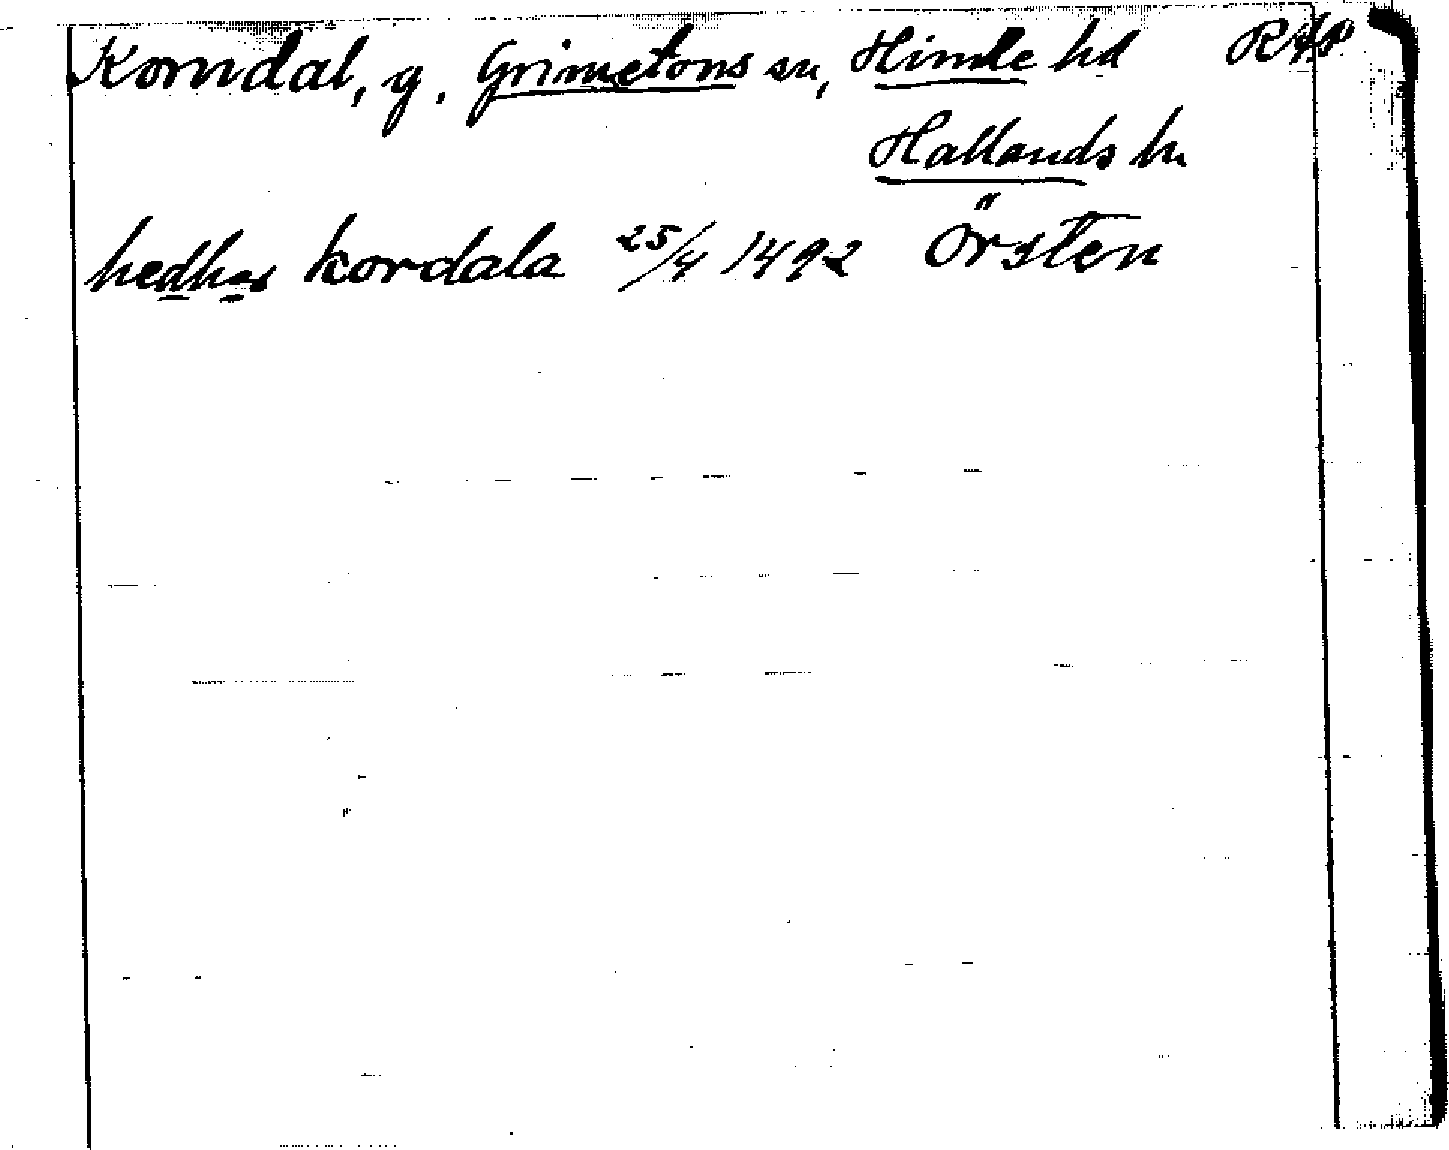 Korndal, g. Grimetons sn, Himle hd RAp
Hallands ln
hedher kordala 25/4 1492 Örsten